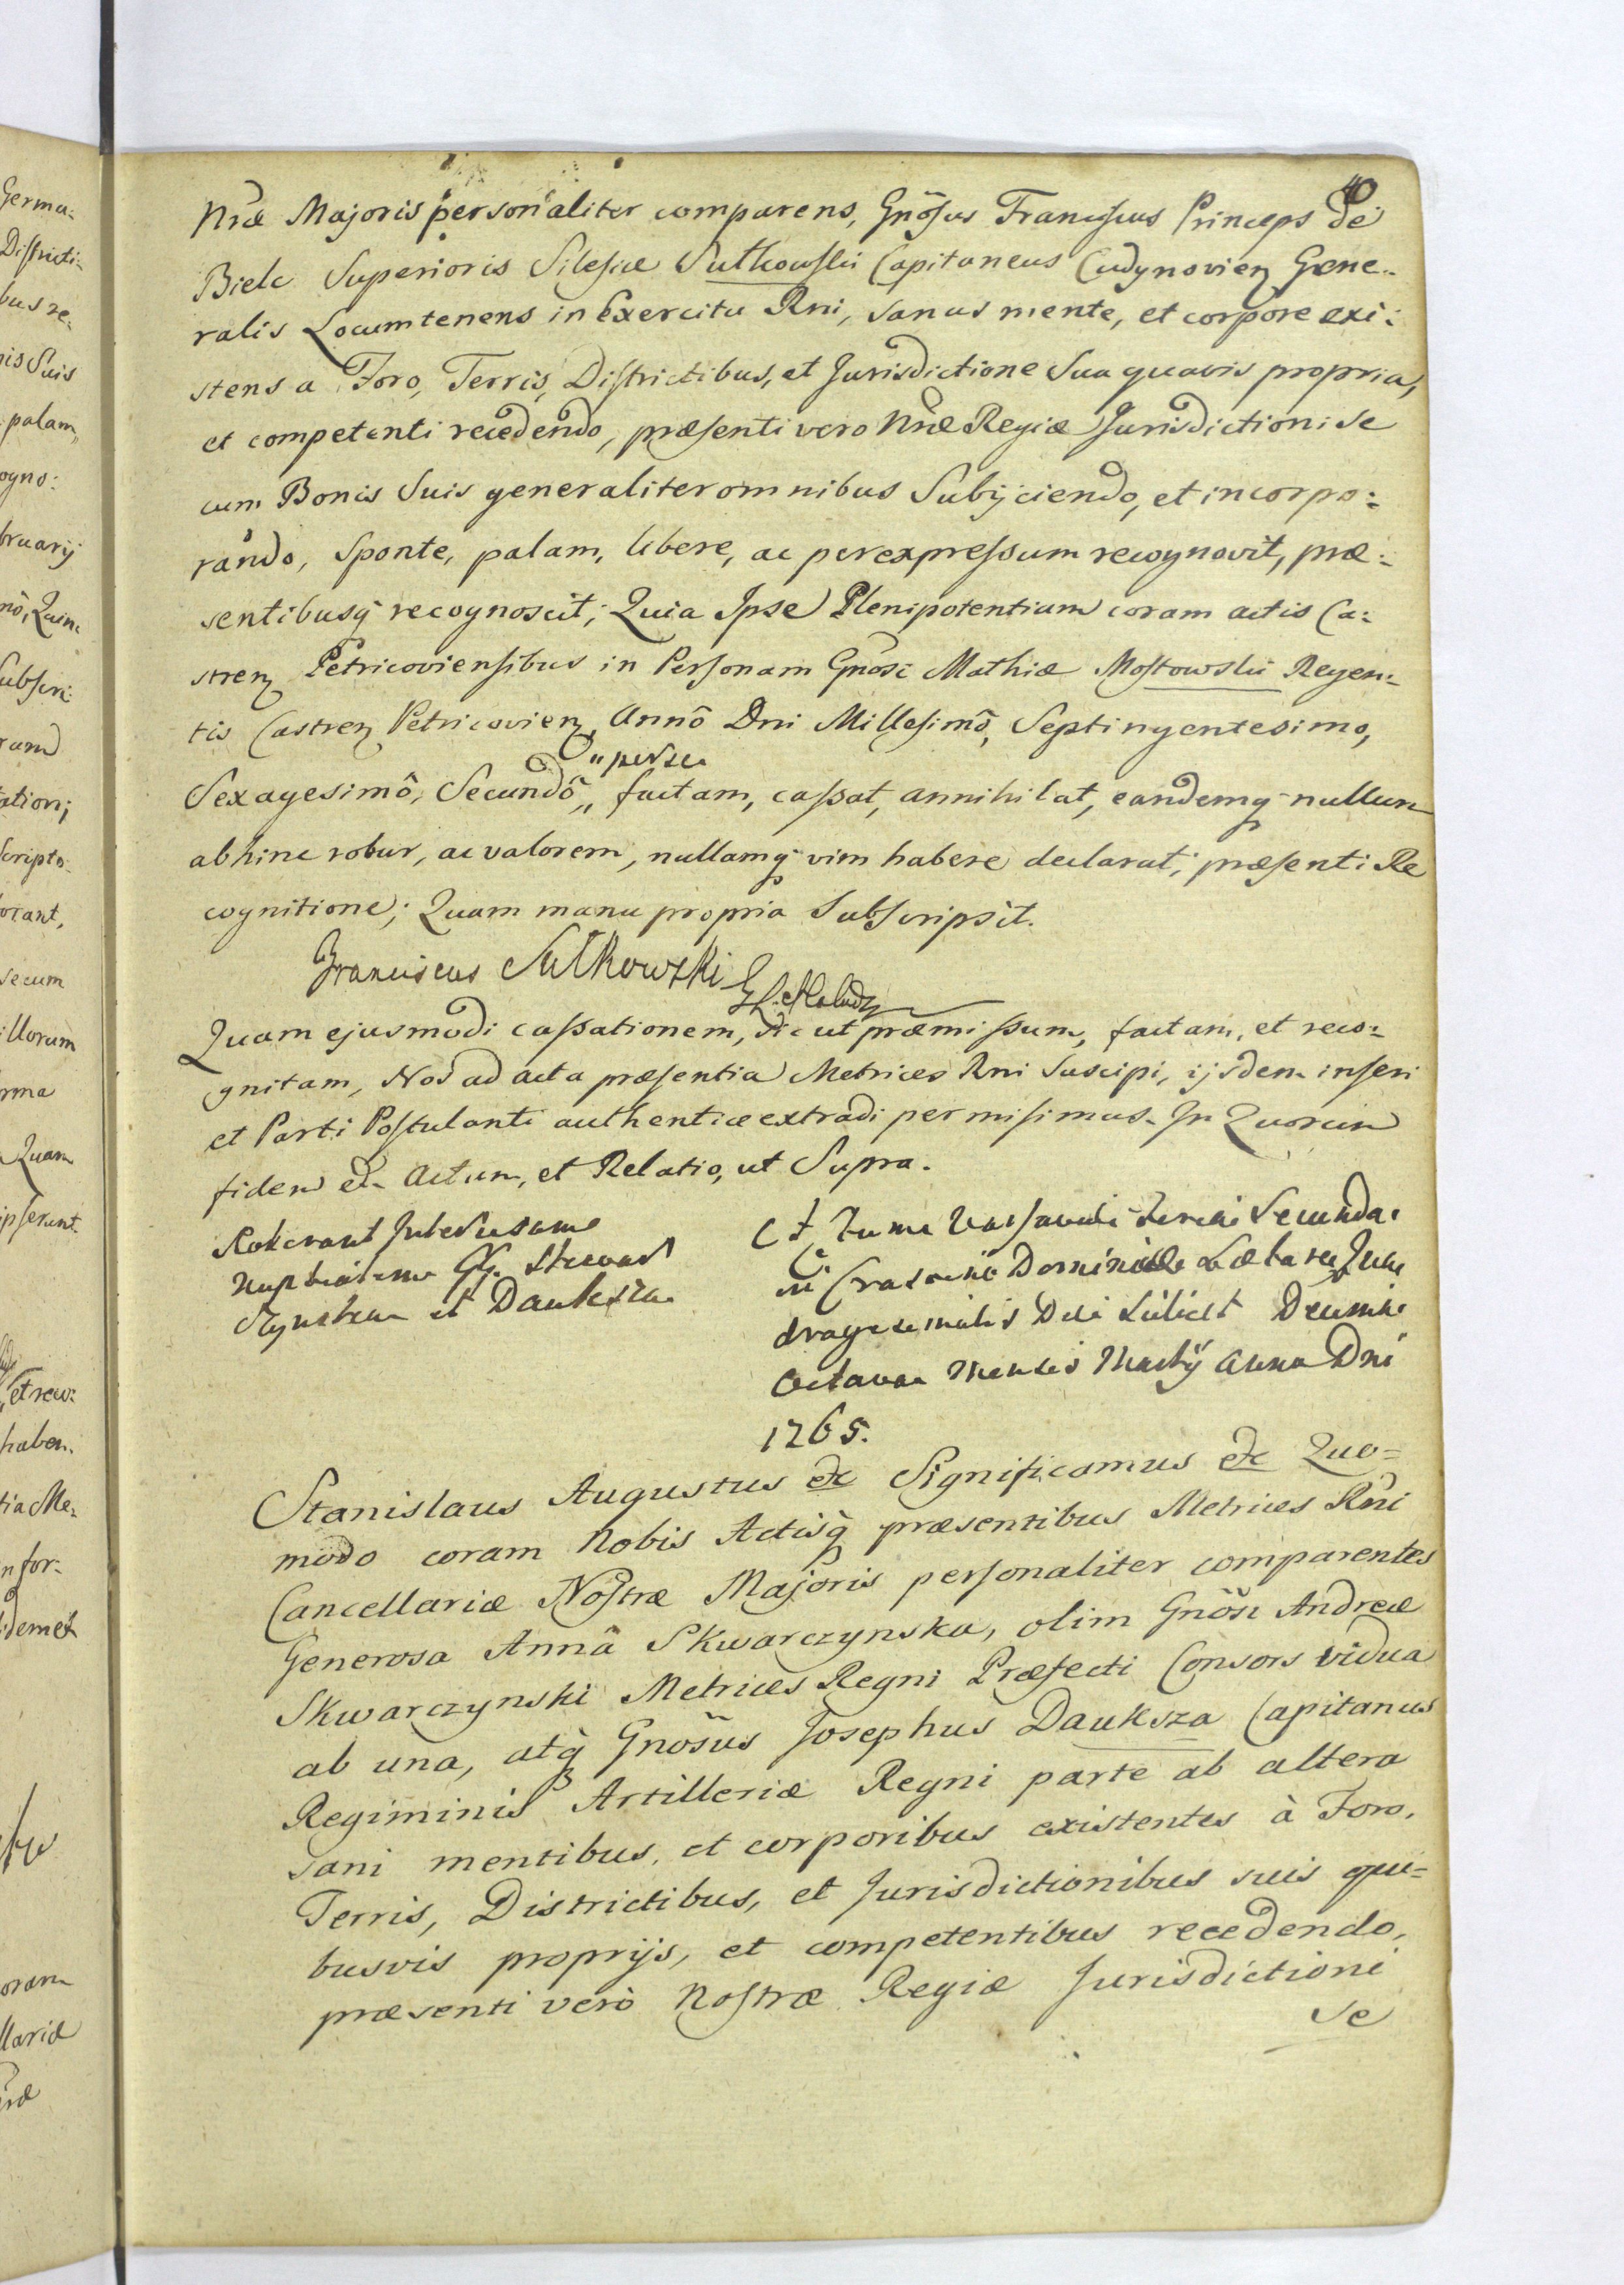 40
Nræ Majoris personaliter comparens, Gnõsus Franciscus Princeps de
Biele Superioris Silesiæ Sułkowski Capitaneus Cudynovien Gene-
ralis Locumtenens in Exercitu Rni, sanus mente, et corpore exi:
stens a Foro, Terris, Districtibus, et Jurisdictione Sua quavis propria,
et competenti recedendo, præsenti vero Nræ Regiæ Jurisdictioni Se
cum Bonis Suis generaliter omnibus Subijciendo, et incorpo:
rando, Sponte, palam, libere, ac per expressum recognovit, præ:
sentibusq recognoscit; Quia Ipse Plenipotentiam coram actis Ca:
stren Petricoviensibus in Personam Gnosi Mathiæ Mostowski Regen:
tis Castren Petricovien, Annô Dni Millesimô, Septingentesimo,
" per se
Sexagesimô, Secundô " factam, cassat, annihilat, eandemq nullum
abhinc robur, ac valorem, nullamq vim habere declarat; præsenti Re
cognitione; Quam manu propria Subscripsit.
Franciscus Sułkowski
Quam ejusmodi cassationem, sic ut præmissum, factam, et reco:
gnitam, Nos ad acta præsentia Metrices Rni Suscipi, ijsdem inseri
et Parti Postulanti authentice extradi permisimus. In Quorum
fidem etc Actum, et Relatio, ut Supra.
Roborant
GG. Skwar
czynska et Dauksza
Actum Varsaviæ Feria Secunda
in Crastino Dominicæ Lætare Qua
dragesimalis Die Scilicet Decima
Octava Mensis Martij Anno Dni
1765.
Stanislaus Augustus etc Significamus etc Quo=
modo coram Nobis Actisq præsentibus Metrices Rni
Cancellariæ Nostræ Majoris personaliter comparentes
Generosa Anna Skwarczynska, olim Gnõsi Andreæ
Skwarczynski Metrices Regni Præfecti Consors vidua
ab una, atq Gnosus Josephus Dauksza Capitanus
Regiminis Artilleriæ Regni parte ab altera
sani mentibus, et corporibus existentes à Foro,
Terris, Districtibus, et Jurisdictionibus suis qui=
busvis proprijs, et competentibus recedendo,
præsenti verò Nostræ Regiæ Jurisdictioni
se
Germa:
Districti-
bus re-
nis Suis
palam,
ogno:
bruarij
Subscri:
ation;
scripto:
orant,
secum
illorum
rma
Quam
ipserunt.
et reco:
haben:
tia Me:
n for:
idemet
oram
llariæ